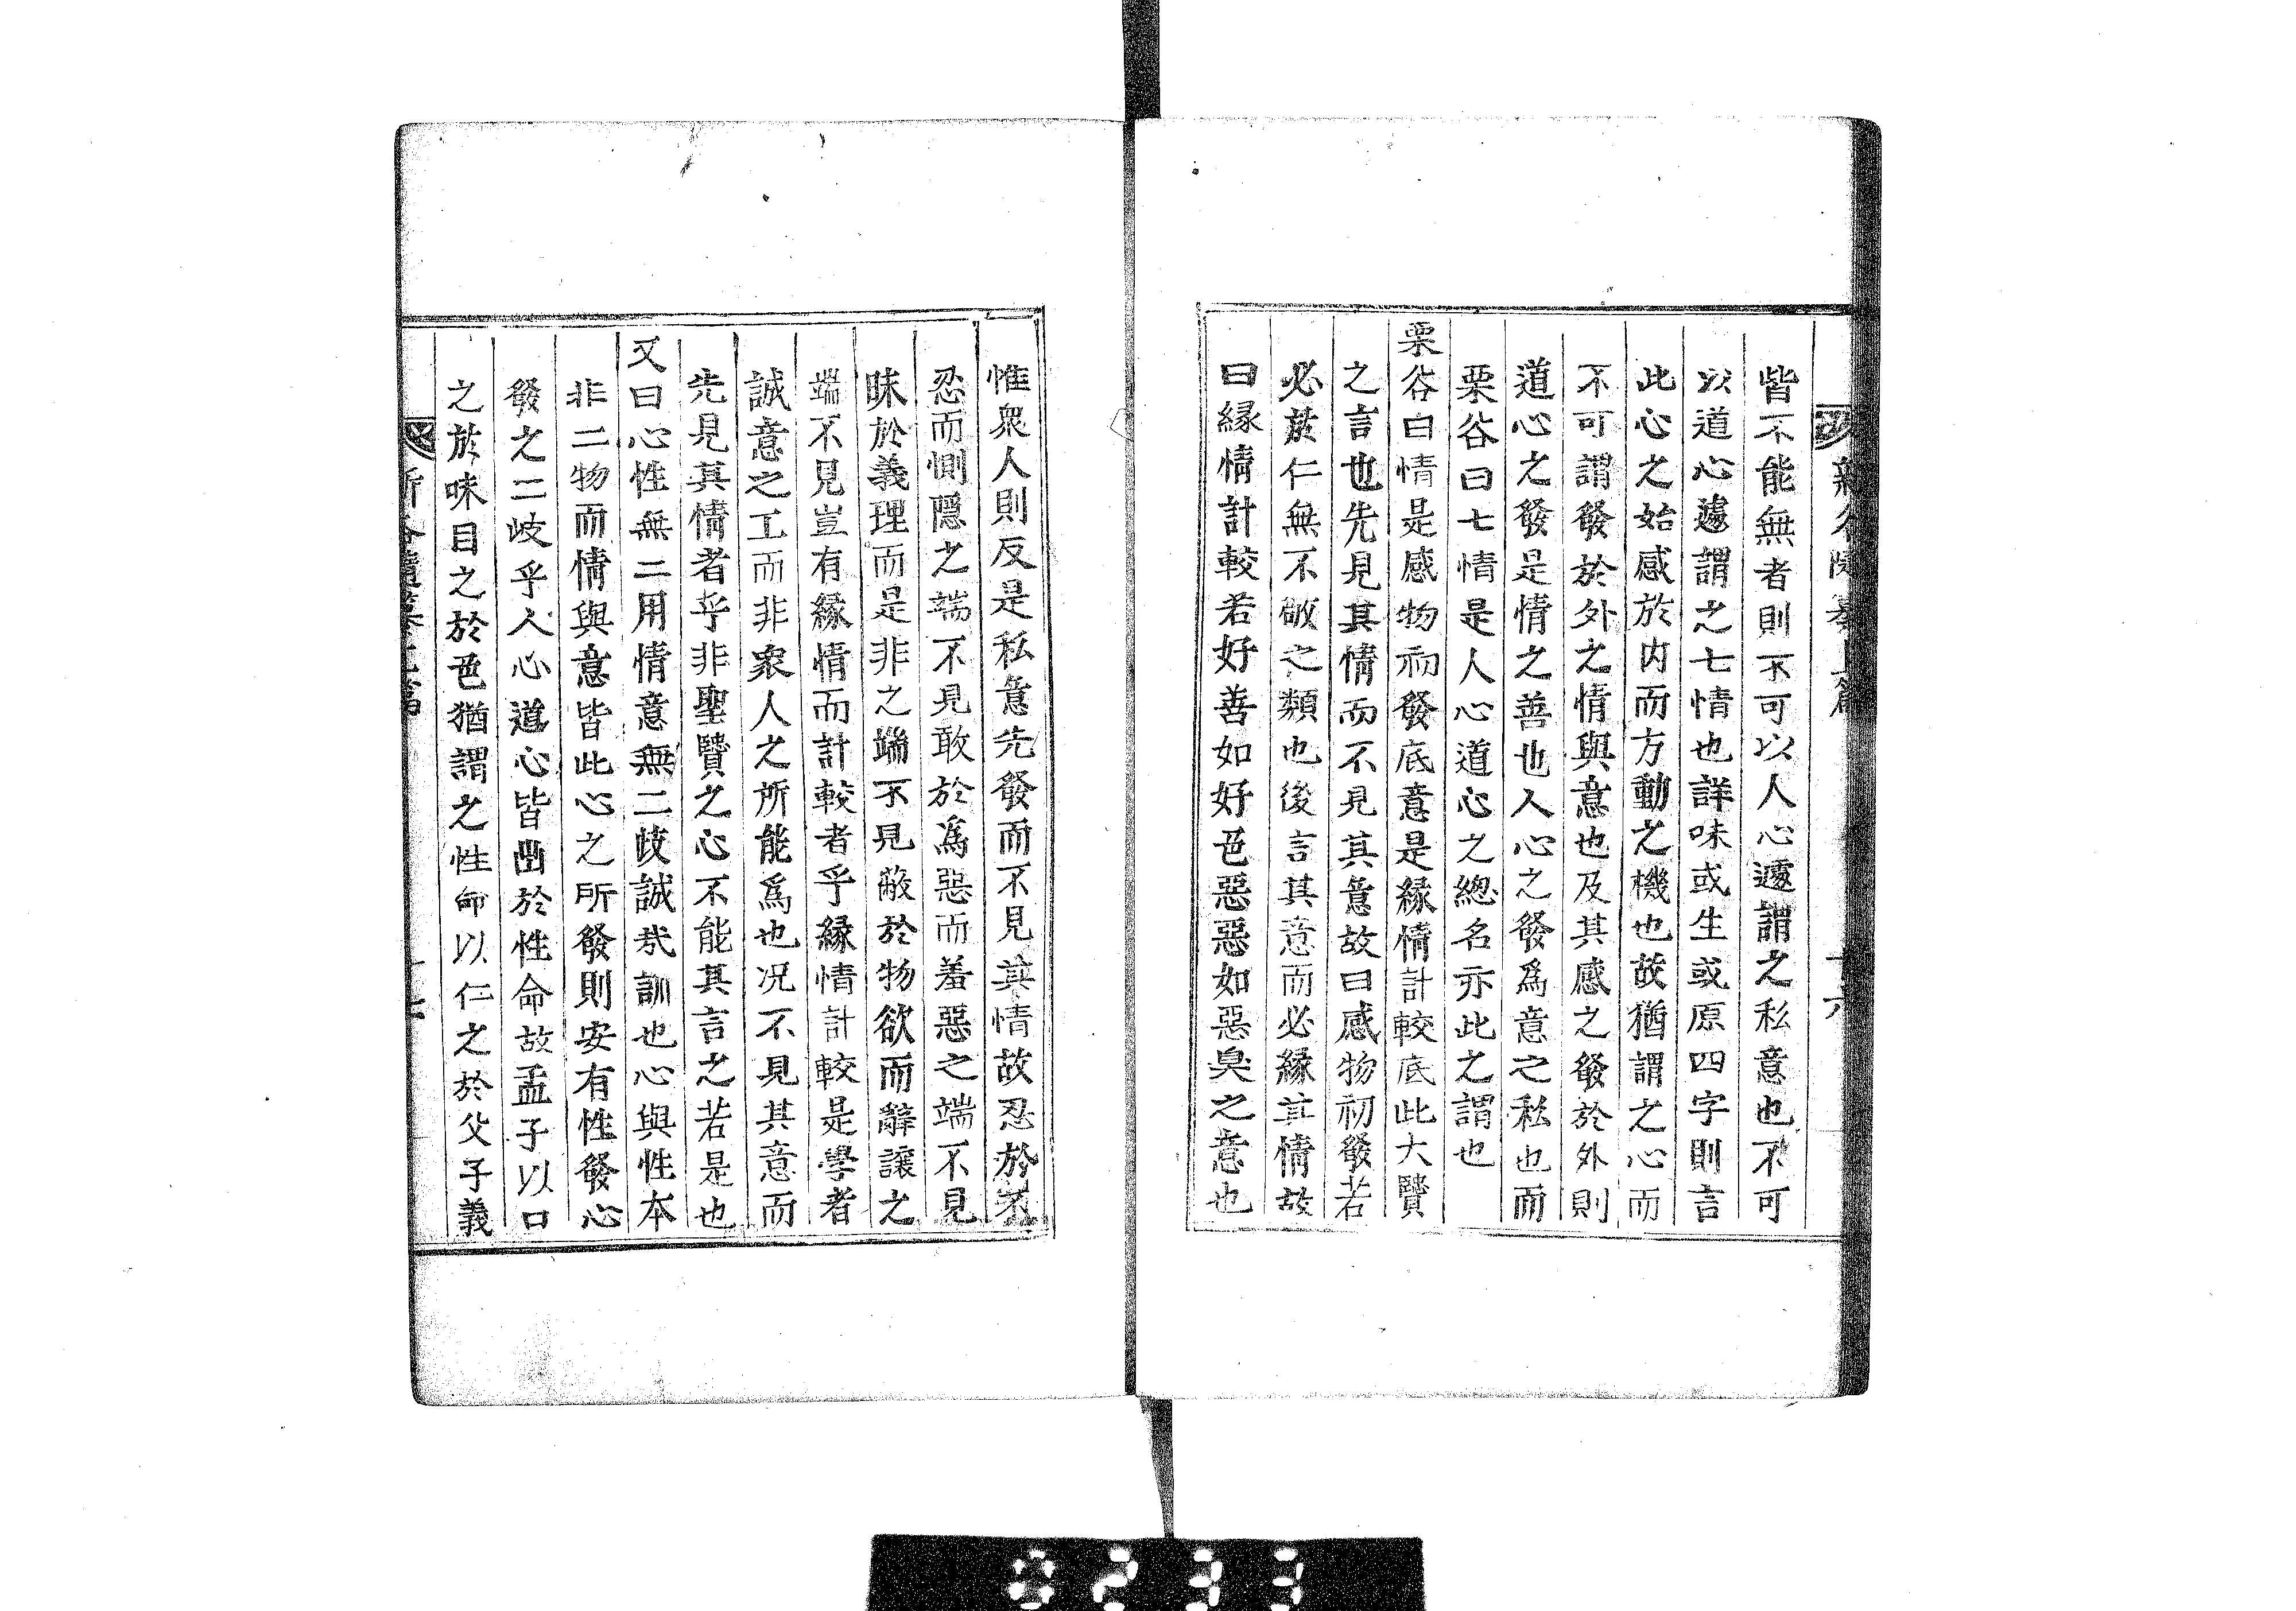 皆不能無者則不可以人心遽謂之私意也不可
以道心遽謂之七情也詳味或生或原四字則言
此心之始感於内而方動之機也故猶謂之心而
不可謂發於外之情與意也及其感之發於外則
道心之發是情之善也人心之發爲意之私也而
栗谷曰七情是人心道心之總名亦此之謂也
栗谷曰情是感物初發底意是縁情計較底此大賢
之言也先見其情而不見其意故曰感物初發若
必於仁無不敬之類也後言其意而必縁其情故
曰縁情計較若好善如好色惡惡如惡臭之意也
惟衆人則反是私意先發而不見其情故忍於不
忍而惻隠之端不見敢於爲惡而羞惡之端不見
昧於義理而是非之端不見蔽於物欲而辭讓之
端不見豈有縁情而計較者乎縁情計較是學者
誠意之工而非衆人之所能爲也况不見其意而
先見其情者乎非聖賢之心不能其言之若是也
又曰心性無二用情意無二歧誠哉訓也心與性本
非二物而情與意皆此心之所發則安有性發心
發之二歧乎人心道心皆出於性命故孟子以口
之於味目之於色猶謂之性命以仁之於父子義
0233